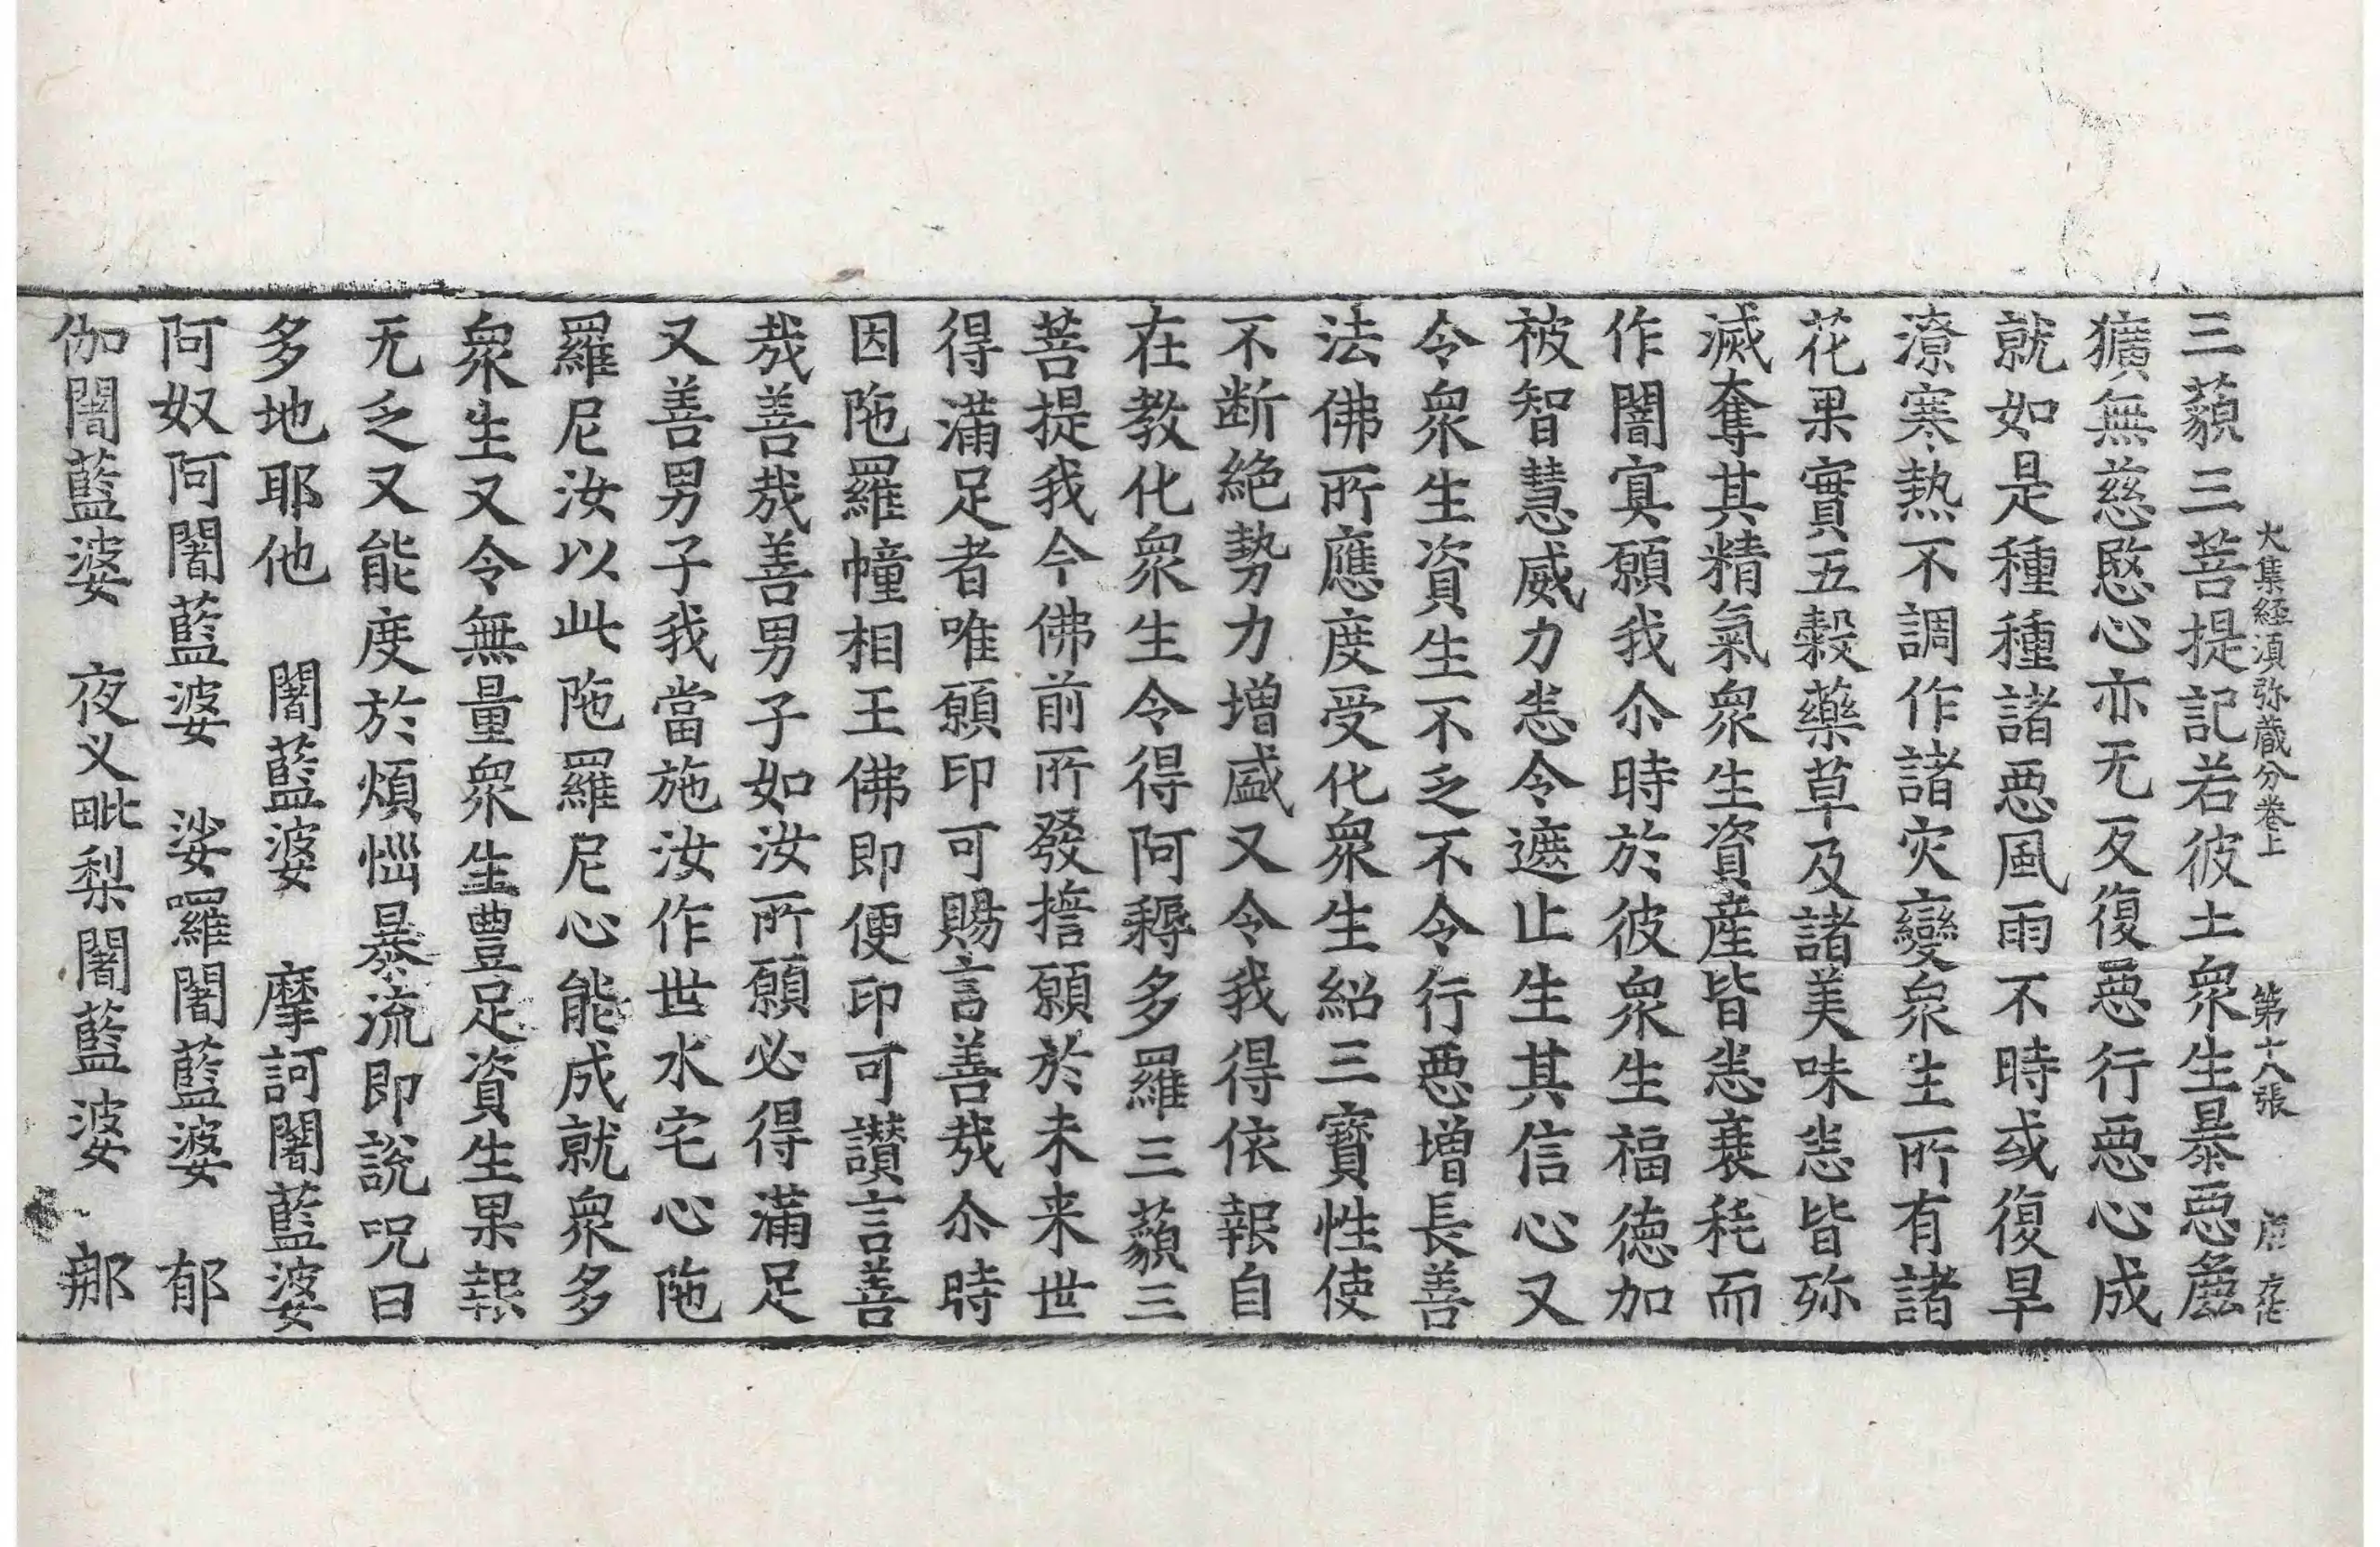 大集經須弥藏分卷上 第十八張
三藐三菩提記若彼土衆生暴惡麁
獷無慈愍心亦无反復惡行惡心成
就如是種種諸惡風雨不時或復旱
潦寒熱不調作諸灾變衆生所有諸
花果實五穀藥草及諸美味悉皆弥
滅奪其精氣衆生資產皆悉衰秏而
作闇冥願我尒時於彼衆生福德加
被智慧威力悉令遮止生其信心又
令衆生資生不乏不令行惡增長善
法佛所應度受化衆生紹三寶性使
不断絕勢力增盛又令我得依報自
在教化衆生令得阿耨多羅三藐三
菩提我今佛前所發擔願於未来世
得滿足者唯願印可賜言善哉尒時
因陁羅幢相王佛即便印可讃言善
哉善哉善男子如汝所願必得滿足
又善男子我當施汝作世水宅心陁
羅尼汝以此陁羅尼心能成就衆多
衆生又令無量衆生豐足資生果報
无乏又能度於煩惱暴流即說呪曰
多地耶他 闍藍婆 摩訶闍藍婆
阿奴阿闍藍婆 娑囉闍藍婆 郁
伽闍藍婆 夜义毗梨闍藍婆 那